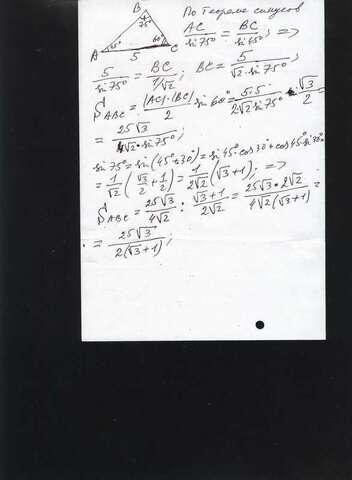 По теореме синусов
B
75°
A 45° 60° C
5
AC/sin75° = BC/sin45°; =>
5/sin75° = BC/(1/√2); BC = 5/(√2·sin75°);
S ABC = |AC|·|BC|/2 sin60° = 5·5/(2√2·sin75°) · √3/2
= 25√3/(4√2·sin75°);
sin75° = sin(45°+30°) = sin45°·cos30° + cos45°·sin30° =
= 1/√2 (√3/2 + 1/2) = 1/(2√2) (√3+1); =>
S ABC = 25√3/(4√2) : (√3+1)/(2√2) = 25√3·2√2/(4√2(√3+1)) =
= 25√3/(2(√3+1));